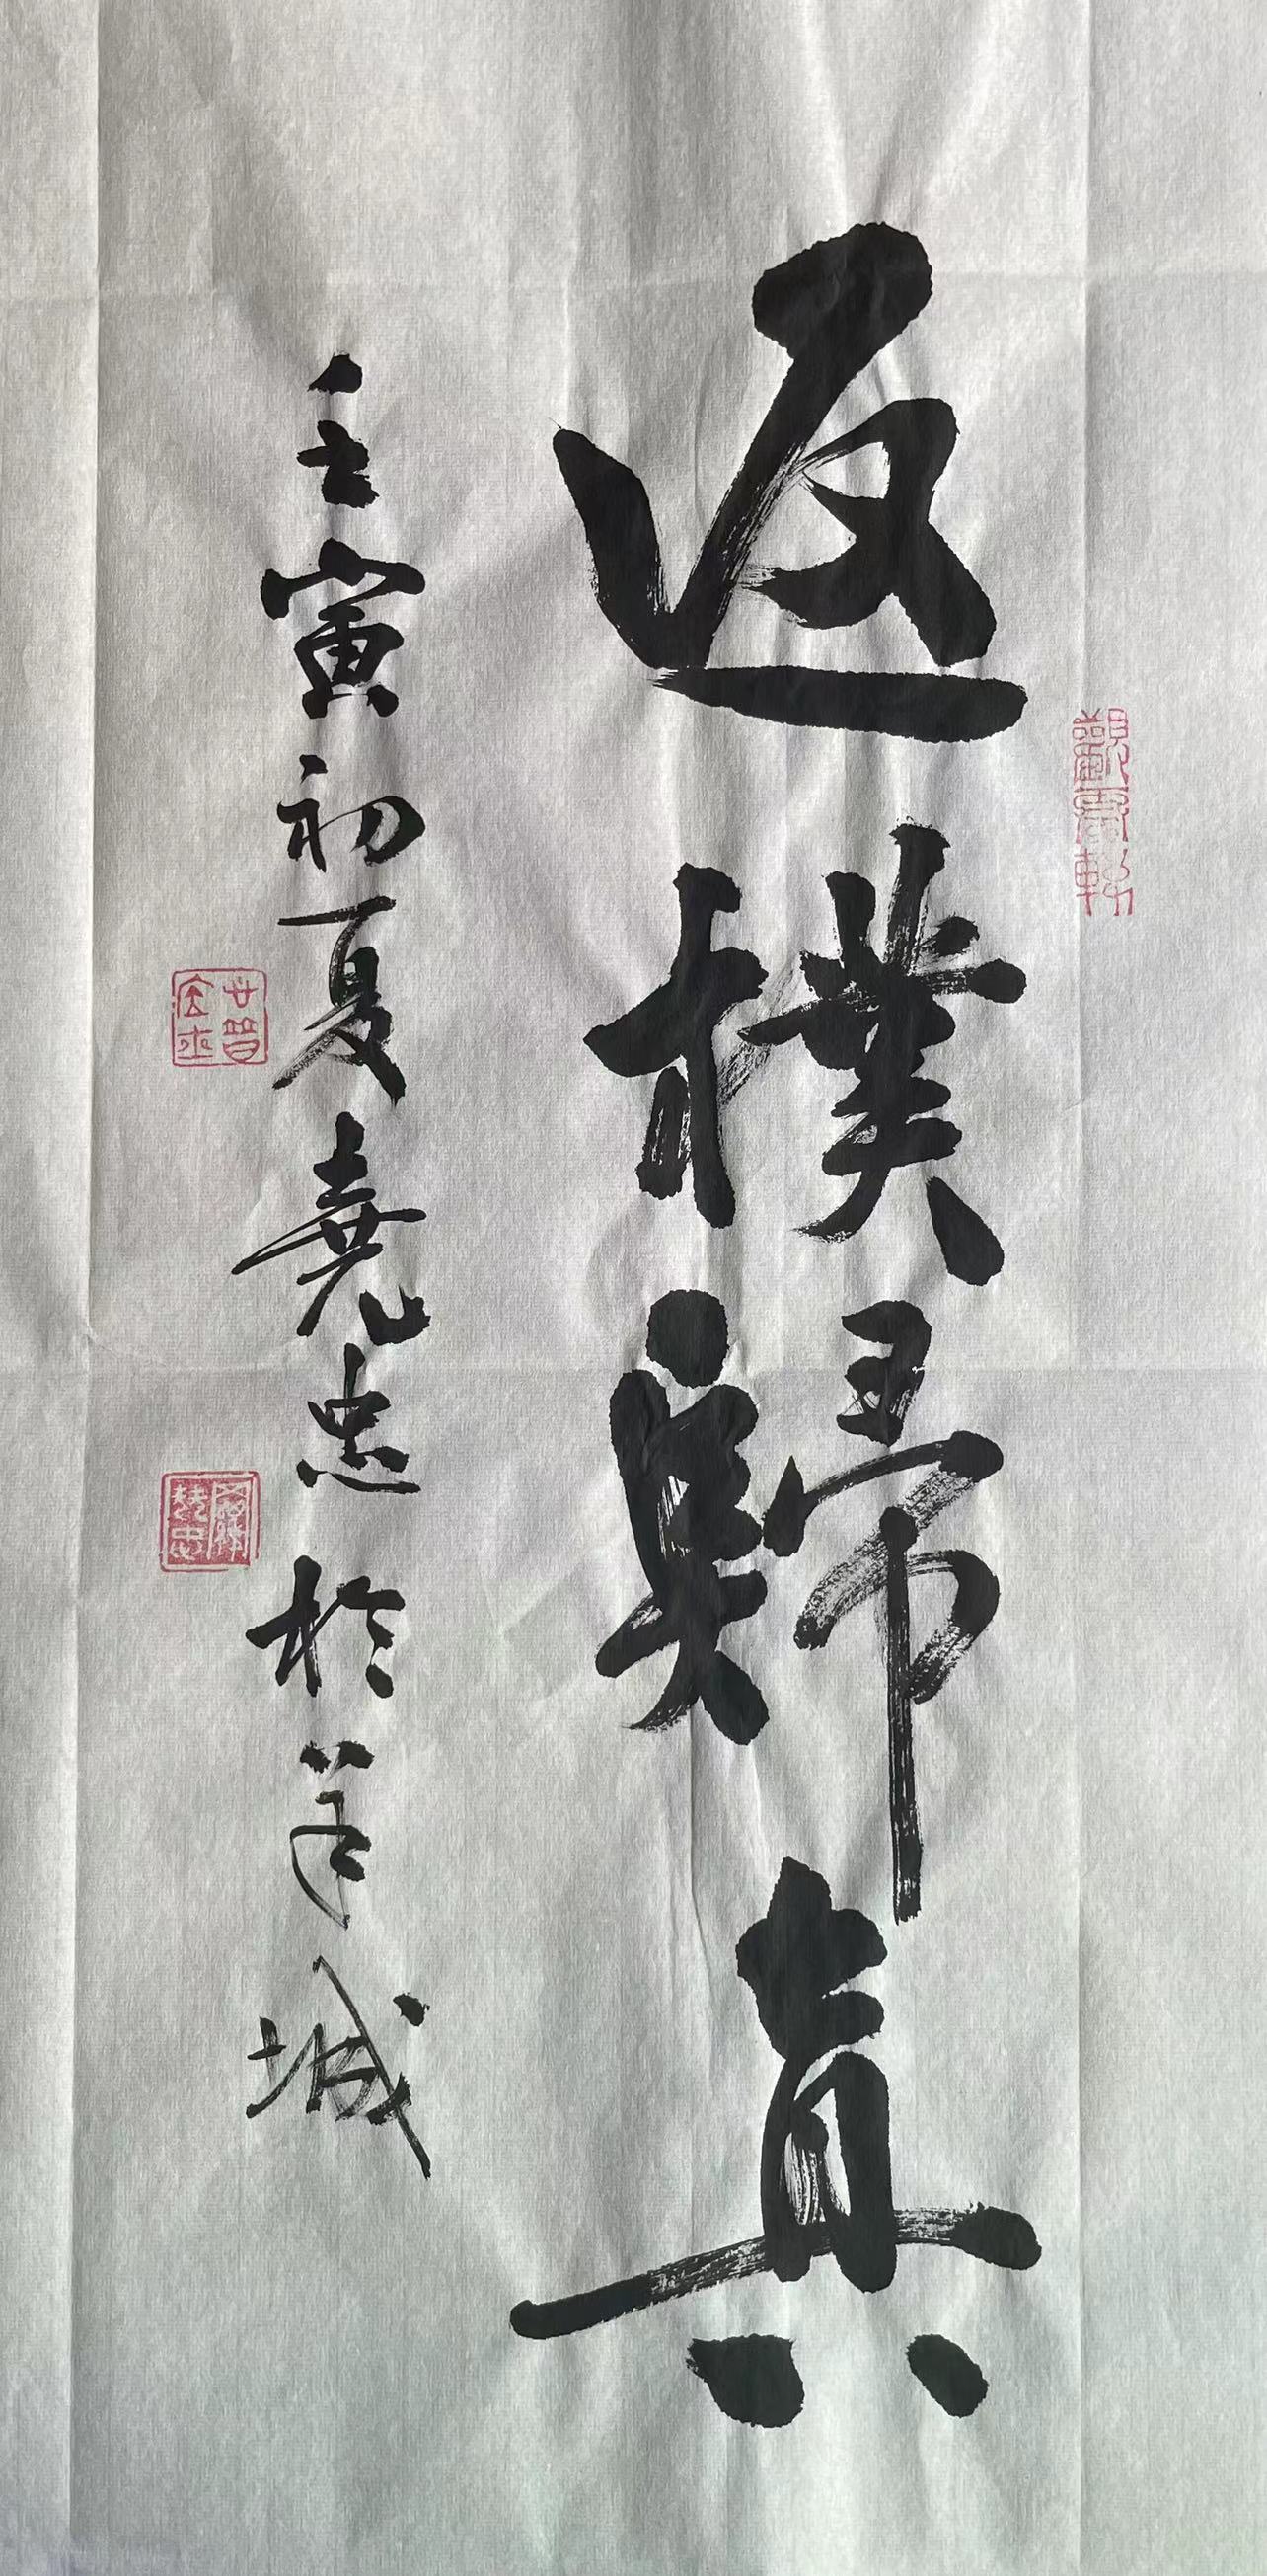 返樸歸真
壬寅初夏堯忠於羊城